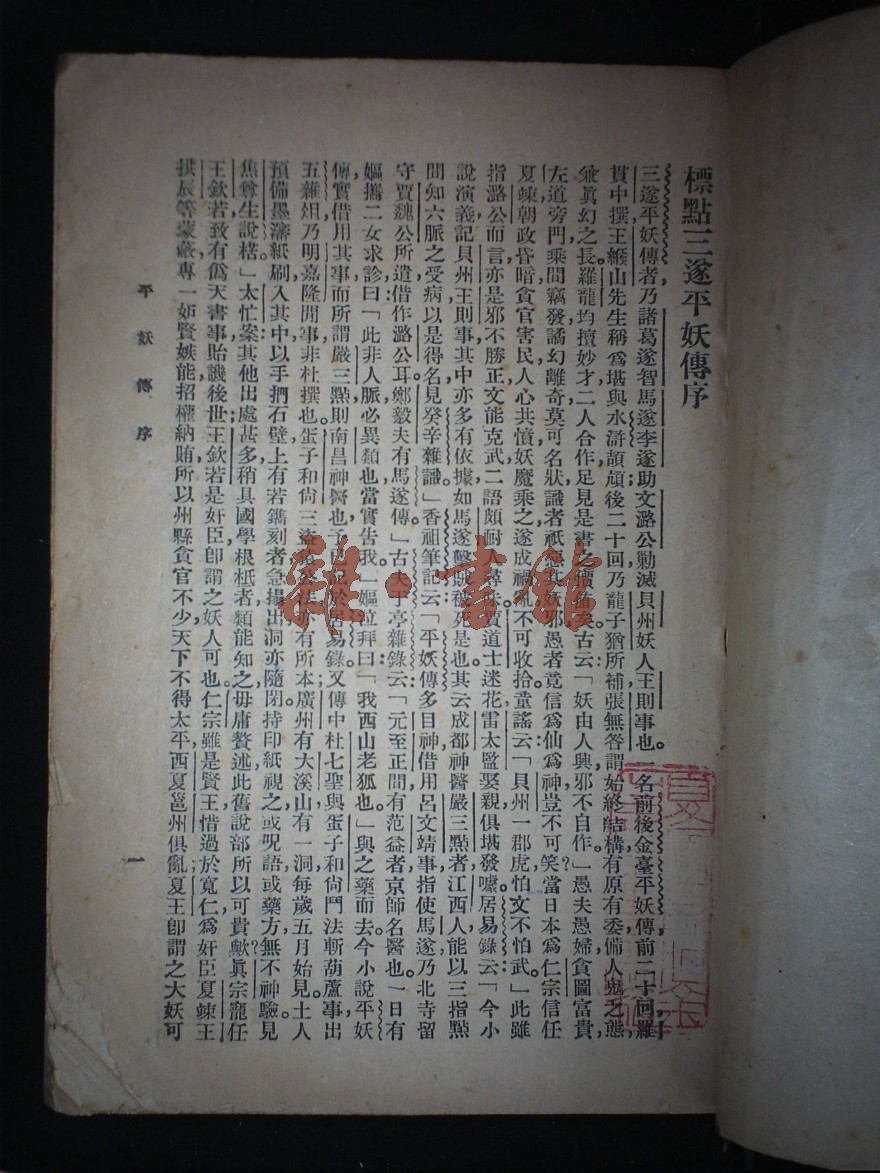 標點三遂平妖傳序
三遂平妖傳者，乃諸葛遂智馬遂李遂助文潞公勦滅貝州妖人王則事也。一名前後金臺平妖傳，前二十回羅
貫中撰，王緱山先生稱爲堪與水滸頡頏；後二十回乃龍子猶所補，張無咎謂：始終結構，有原有委，備人鬼之態，
兼眞幻之長。羅龍均擅妙才，二人合作，足見是書之價値矣。古云：「妖由人興，邪不自作。」愚夫愚婦，貪圖富貴，
左道旁門，乘間竊發，譎幻離奇，莫可名狀，識者祇惡其妖邪，愚者竟信爲仙爲神，豈不可笑？當日本爲仁宗信任
夏竦，朝政昏暗，貪官害民，人心共憤，妖魔乘之，遂成禍亂，不可收拾。童謠云：「貝州一郡虎，怕文不怕武。」此雖
指潞公而言，亦是邪不勝正，文能克武二語，頗耐人尋味。賈道士迷花，雷太監娶親，俱堪發噱。居易錄云：「今小
說演義記貝州王則事，其中亦多有依據，如馬遂擊賊被死是也。其云成都神醫嚴三點者，江西人，能以三指點
間知六脈之受病，以是得名，見癸辛雜識。」香祖筆記云：「平妖傳多目神，借用呂文靖事，指使馬遂，乃北寺留
守賈魏公所遣，借作潞公耳。鄭毅夫有馬遂傳。」古夫于亭雜錄云：「元至正間，有范益者，京師名醫也。一日有
嫗攜二女求診，曰：「此非人脈，必異類也，當實告我。」嫗泣拜曰：「我西山老狐也。」與之藥而去。今小說平妖
傳實借用其事，而所謂嚴三點，則南昌神醫也，予已記於居易錄。又傳中杜七聖與蛋子和尙鬥法斬葫蘆事，出
五雜俎，乃明嘉隆間事，非杜撰也。蛋子和尙三盜袁公法，亦有所本，廣州有大溪山，有一洞，每歲五月始見。土人
預備墨瀋紙刷，入其中，以手捫石壁上，有若鐫刻者，急搨出，洞亦隨閉。持印紙視之，或呪語，或藥方，無不神驗，見
焦尊生說楛。」太忙案：其他出處甚多，稍具國學根柢者，類能知之，毋庸贅述，此舊說部所以可貴歟？眞宗寵任
王欽若，致有僞天書事，貽譏後世；王欽若是奸臣，卽謂之妖人可也。仁宗雖是賢王，惜過於寬仁，爲奸臣夏竦王
拱辰等蒙蔽，專一妬賢嫉能，招權納賄，所以州縣貪官不少，天下不得太平，西夏邕州俱亂，夏王卽謂之大妖可
平妖傳序
一